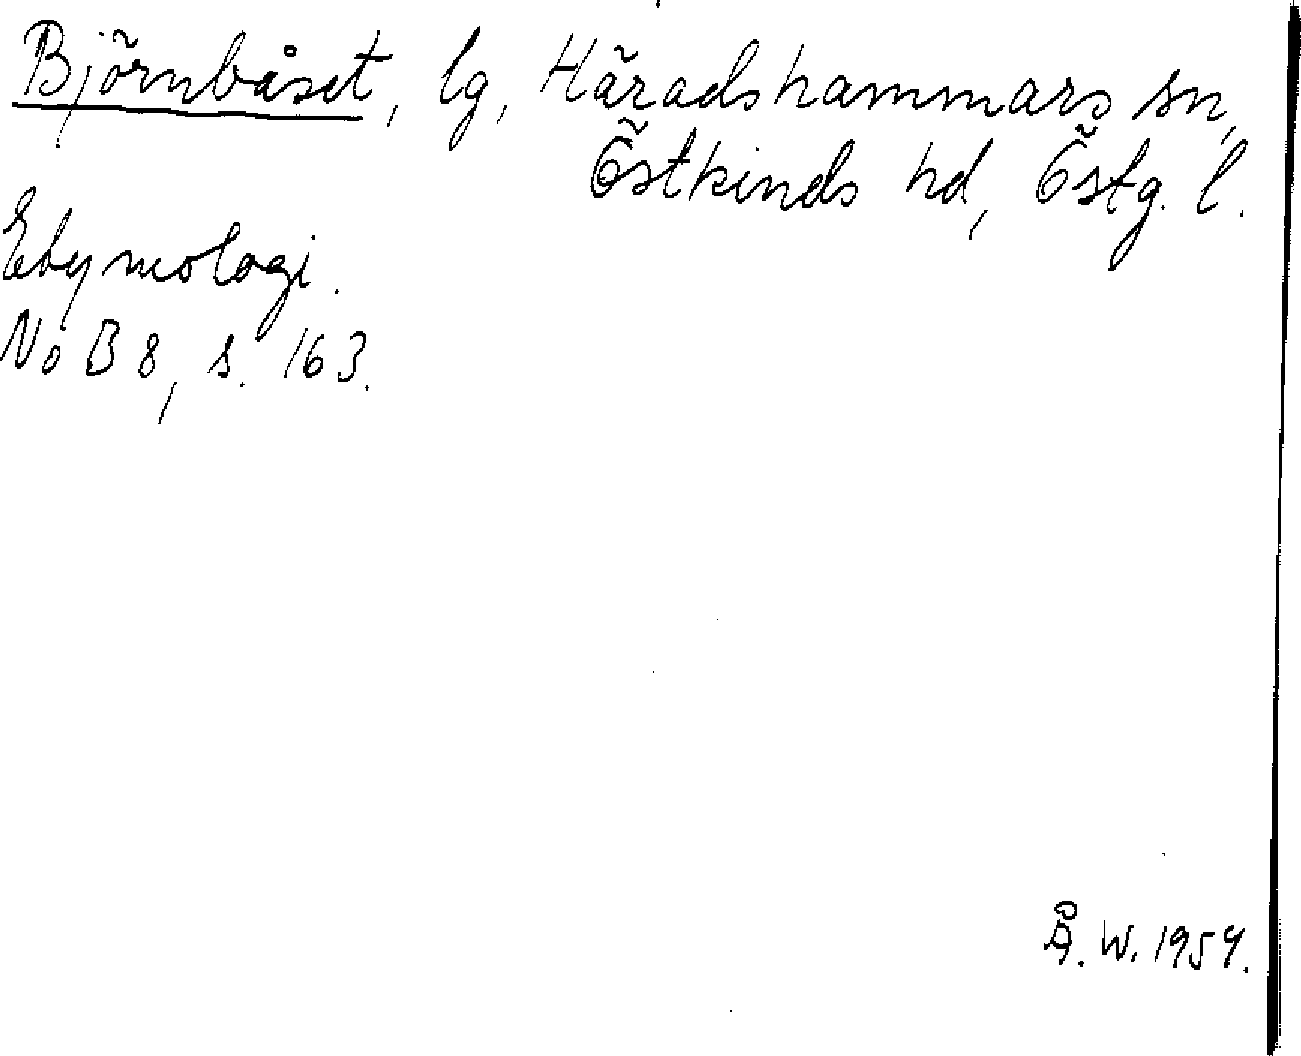 Björnbåset, lg, Häradshammars sn,
Östkinds hd, Östg. l.
Etymologi.
NoB 8, s. 163.
Å. W. 1954.